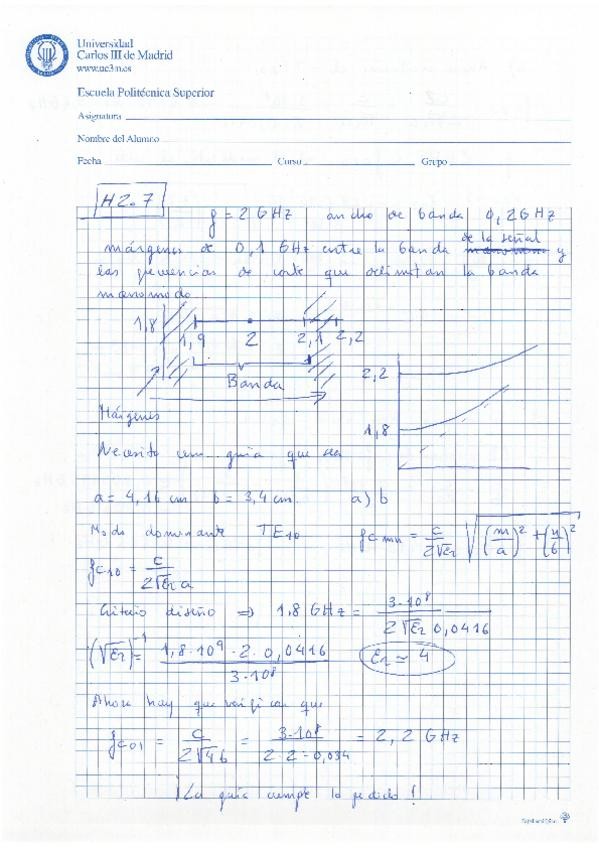 Universidad
Carlos III de Madrid
www.uc3m.es
Escuela Politécnica Superior
Asignatura
Nombre del Alumno
Fecha Curso Grupo
H2.7
f = 2 GHz ancho de banda 0,2 GHz
de la señal
márgenes de 0,1 GHz entre la banda y
las frecuencias de corte que delimitan la banda
monomodo
1,8
1,9 2 2,1 2,2
Banda
2,2
1,8
Márgenes
Necesito una guía que sea
a = 4,16 cm b = 3,4 cm. a) b
Modo dominante TE10 fcmn = c/(2√εr) √((m/a)² + (n/b)²)
fc10 = c/(2√εr a)
Criterio diseño ⇒ 1,8 GHz = 3·10⁸/(2√εr 0,0416)
(√εr)⁻¹ = 1,8·10⁹·2·0,0416/(3·10⁸) εr ≃ 4
Ahora hay que verificar que
fc01 = c/(2√4 b) = 3·10⁸/(2·2·0,034) = 2,2 GHz
¡La guía cumple lo pedido!